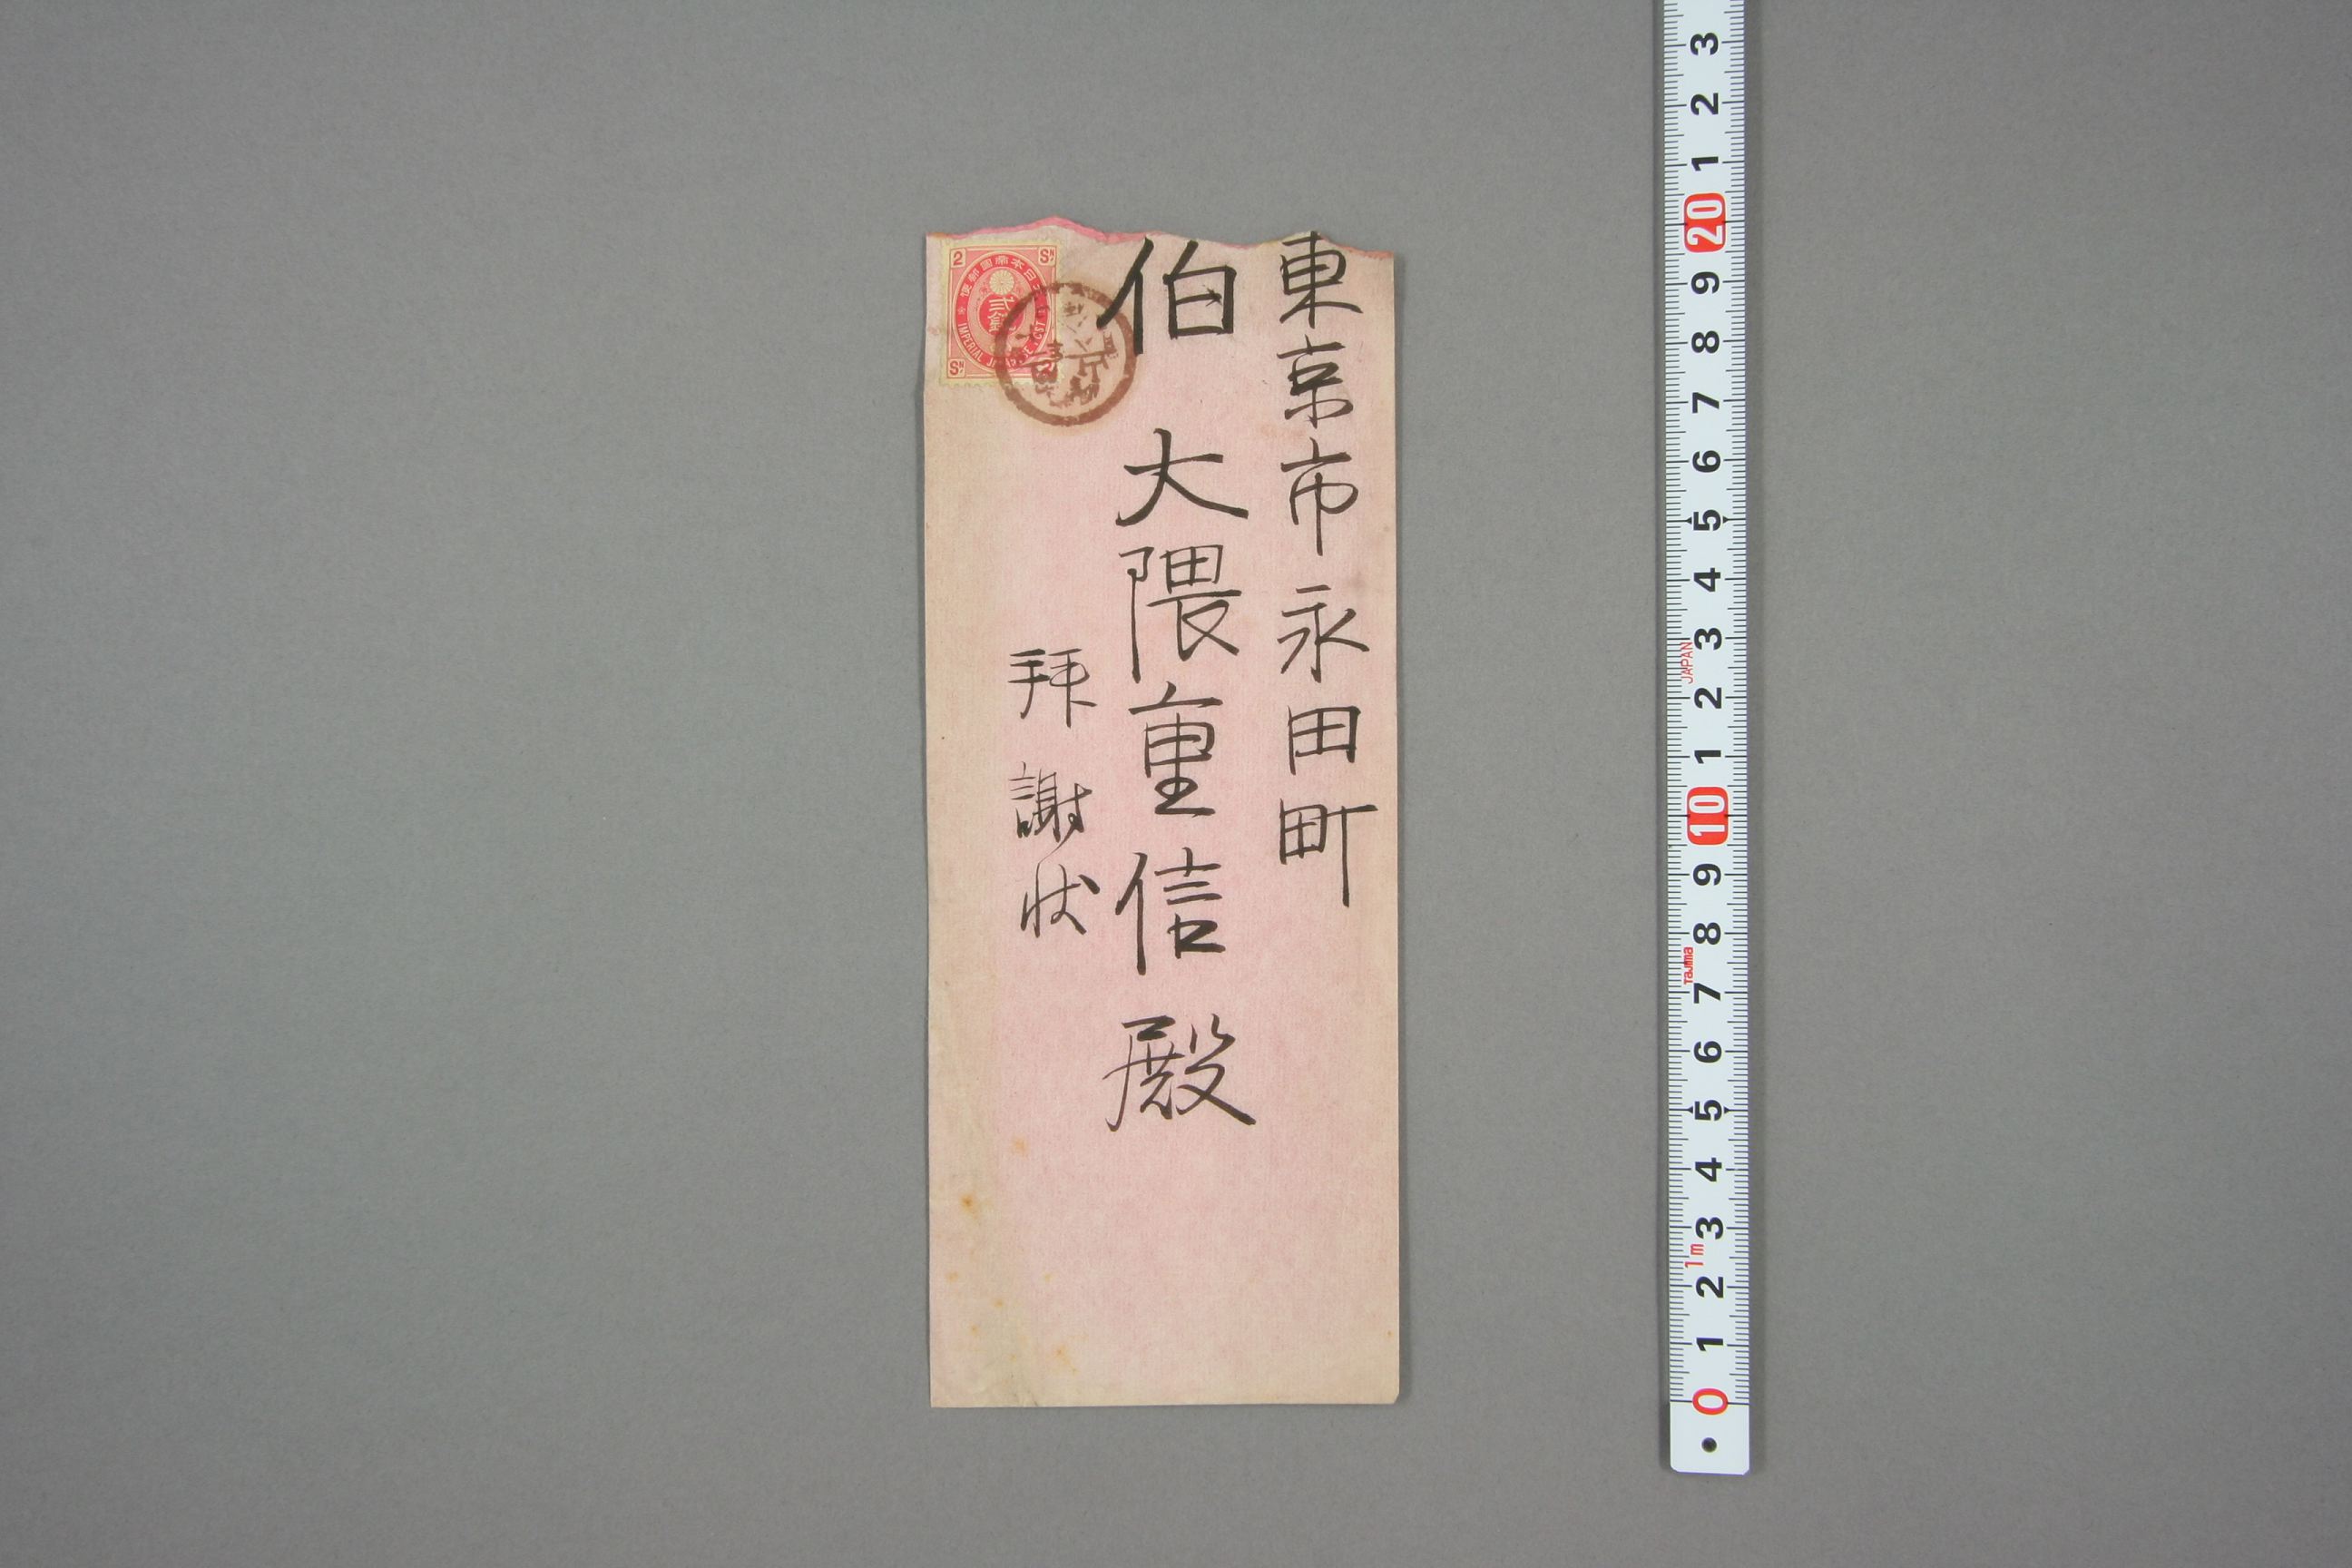 東京市永田町
伯 大隈重信殿
拜謝状
2 SN
大日本帝國郵便
貳錢
IMPERIAL JAPANESE POST
SN
3
2
1
20
9
8
7
6
5
4
3
JAPAN
2
1
10
9
8
Tajima
7
6
5
4
3
1m
2
1
0